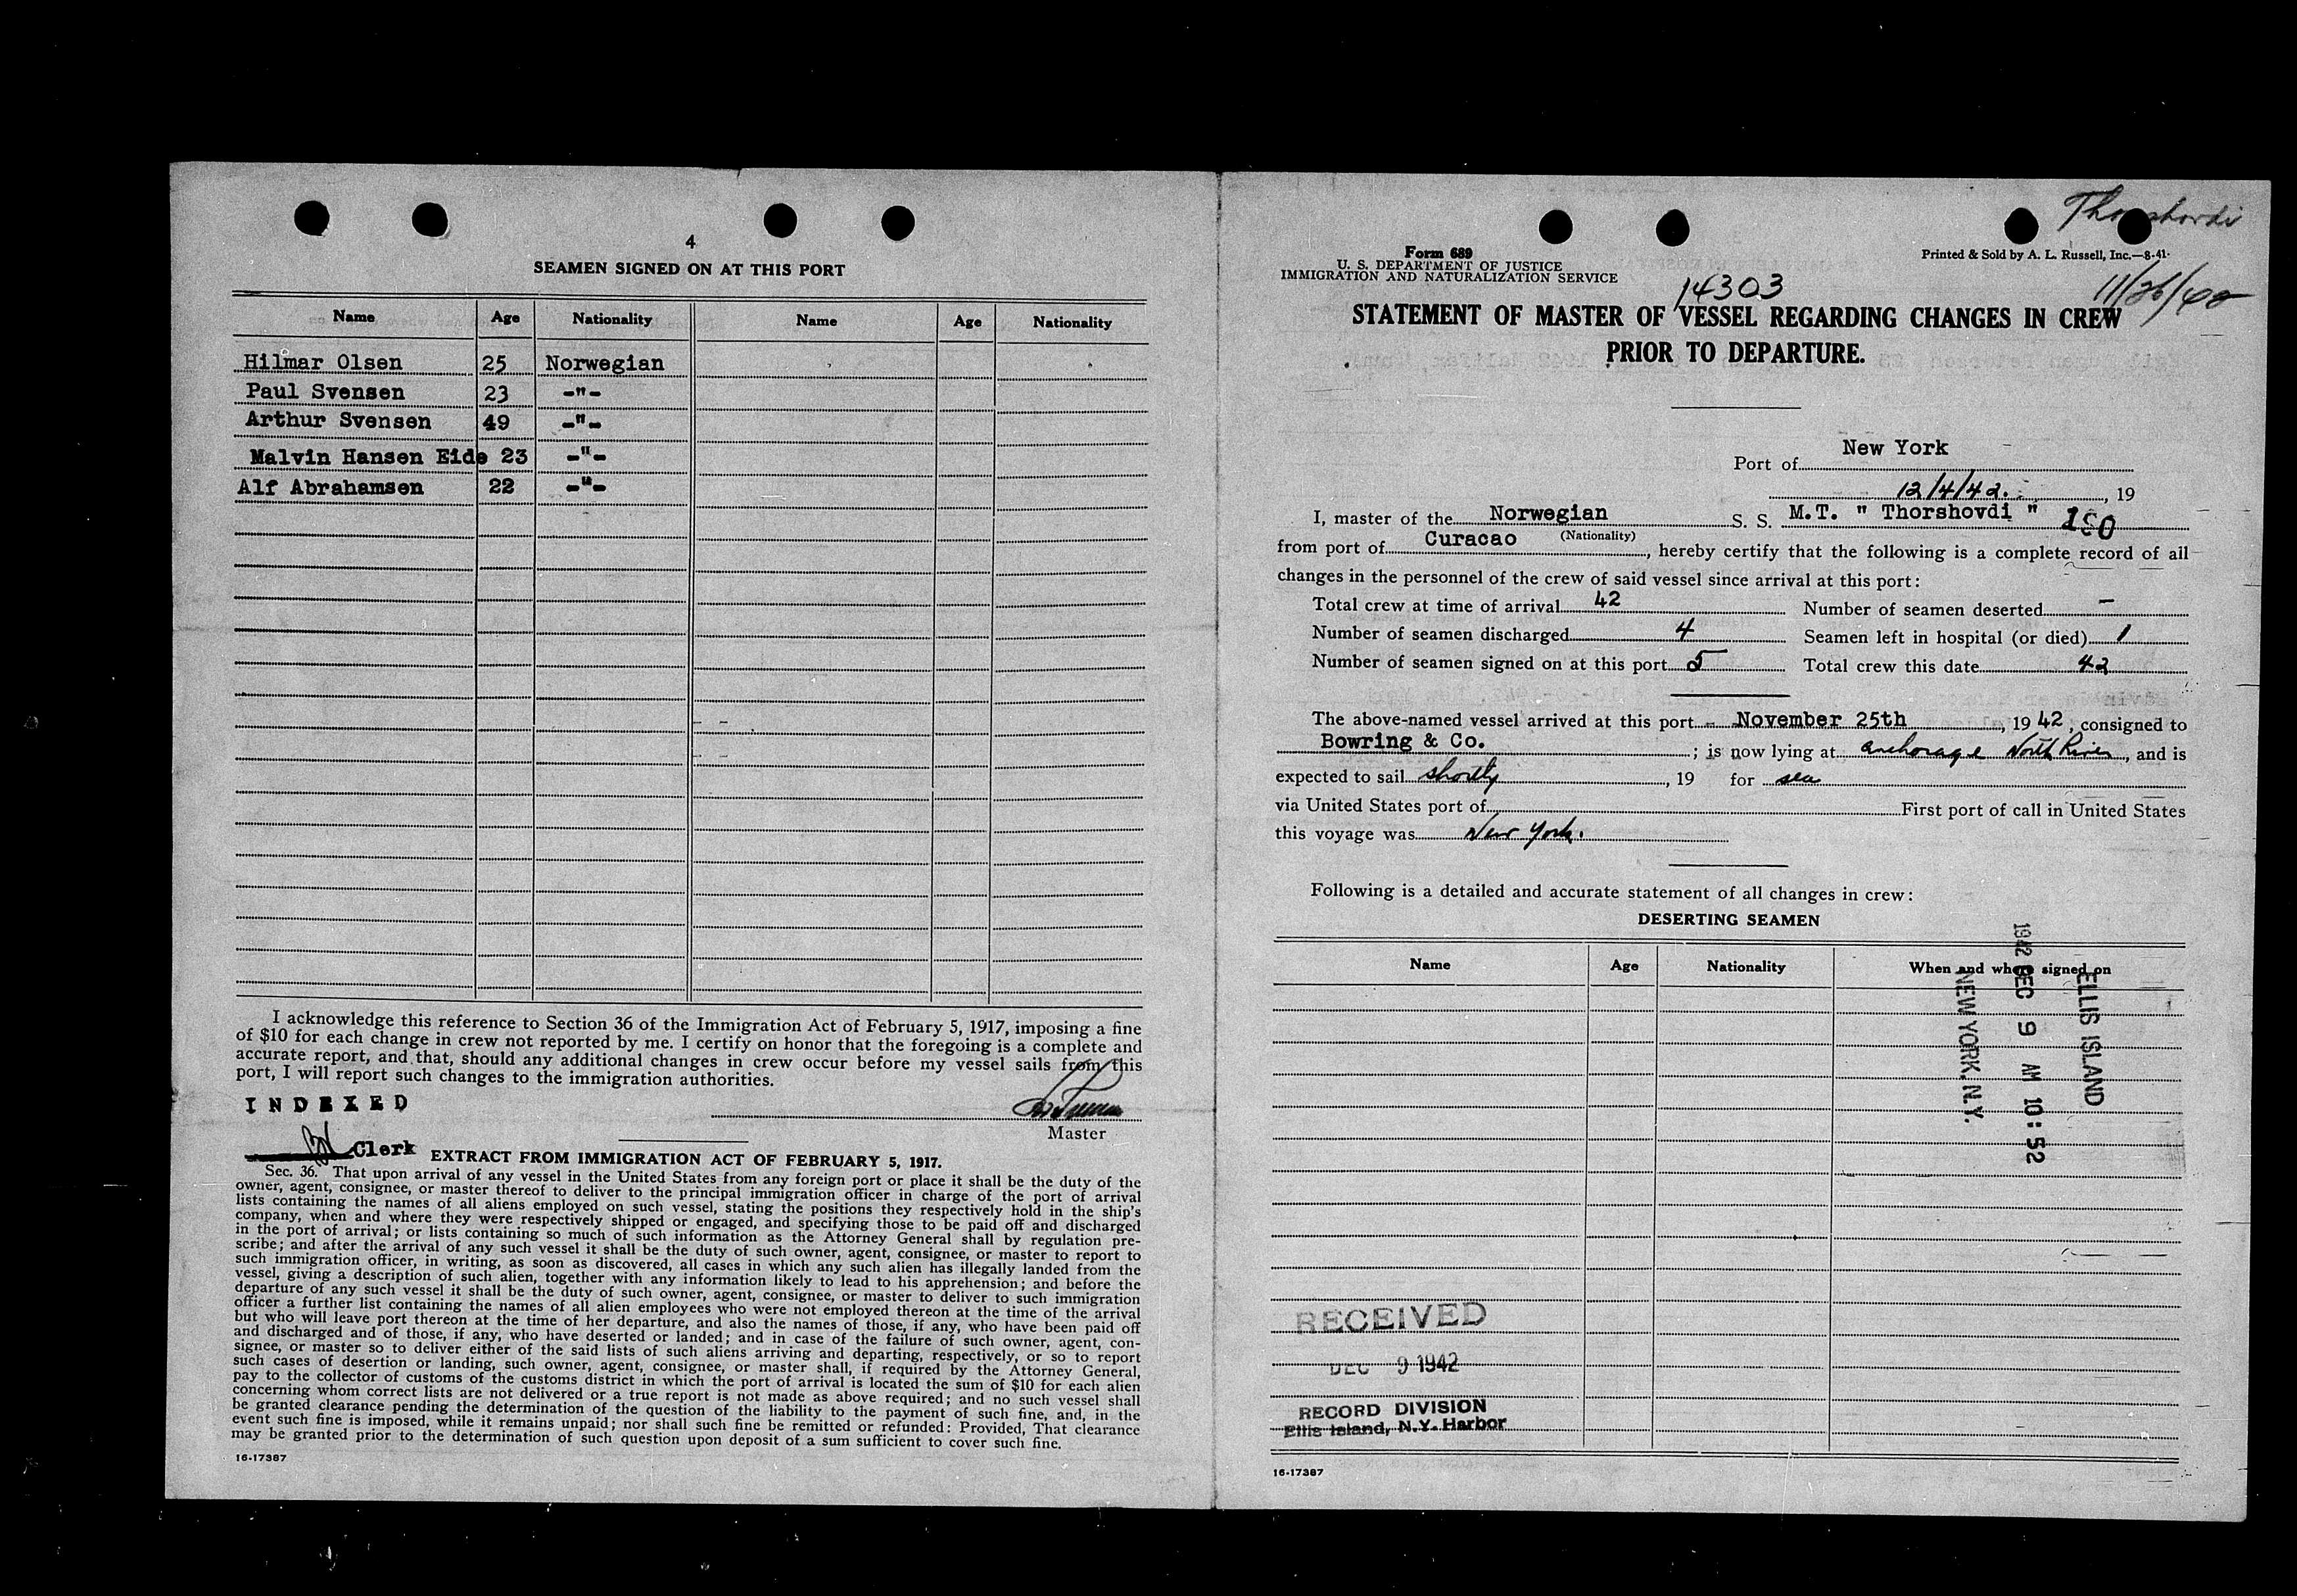 4
SEAMEN SIGNED ON AT THIS PORT
Name Age Nationality Name Age Nationality
Hilmar Olsen 25 Norwegian
Paul Svensen 23 -"-
Arthur Svensen 49 -"-
Malvin Hansen Eide 23 -"-
Alf Abrahamsen 22 -"-
I acknowledge this reference to Section 36 of the Immigration Act of February 5, 1917, imposing a fine
of $10 for each change in crew not reported by me. I certify on honor that the foregoing is a complete and
accurate report, and that, should any additional changes in crew occur before my vessel sails from this
port, I will report such changes to the immigration authorities.
INDEXED
Master
Clerk
EXTRACT FROM IMMIGRATION ACT OF FEBRUARY 5, 1917.
Sec. 36. That upon arrival of any vessel in the United States from any foreign port or place it shall be the duty of the
owner, agent, consignee, or master thereof to deliver to the principal immigration officer in charge of the port of arrival
lists containing the names of all aliens employed on such vessel, stating the positions they respectively hold in the ship's
company, when and where they were respectively shipped or engaged, and specifying those to be paid off and discharged
in the port of arrival; or lists containing so much of such information as the Attorney General shall by regulation pre-
scribe; and after the arrival of any such vessel it shall be the duty of such owner, agent, consignee, or master to report to
such immigration officer, in writing, as soon as discovered, all cases in which any such alien has illegally landed from the
vessel, giving a description of such alien, together with any information likely to lead to his apprehension; and before the
departure of any such vessel it shall be the duty of such owner, agent, consignee, or master to deliver to such immigration
officer a further list containing the names of all alien employees who were not employed thereon at the time of the arrival
but who will leave port thereon at the time of her departure, and also the names of those, if any, who have been paid off
and discharged and of those, if any, who have deserted or landed; and in case of the failure of such owner, agent, con-
signee, or master so to deliver either of the said lists of such aliens arriving and departing, respectively, or so to report
such cases of desertion or landing, such owner, agent, consignee, or master shall, if required by the Attorney General,
pay to the collector of customs of the customs district in which the port of arrival is located the sum of $10 for each alien
concerning whom correct lists are not delivered or a true report is not made as above required; and no such vessel shall
be granted clearance pending the determination of the question of the liability to the payment of such fine, and, in the
event such fine is imposed, while it remains unpaid; nor shall such fine be remitted or refunded: Provided, That clearance
may be granted prior to the determination of such question upon deposit of a sum sufficient to cover such fine.
16-17387
Thorshovdi
Form 689
U. S. DEPARTMENT OF JUSTICE
IMMIGRATION AND NATURALIZATION SERVICE
Printed & Sold by A. L. Russell, Inc.—8-41-
14303
STATEMENT OF MASTER OF VESSEL REGARDING CHANGES IN CREW
PRIOR TO DEPARTURE.
Port of New York
12/4/42. , 19
I, master of the Norwegian S. S. M.T. " Thorshovdi "
(Nationality)
from port of Curacao , hereby certify that the following is a complete record of all
changes in the personnel of the crew of said vessel since arrival at this port:
Total crew at time of arrival 42 Number of seamen deserted –
Number of seamen discharged 4 Seamen left in hospital (or died) 1
Number of seamen signed on at this port 5 Total crew this date 42
The above-named vessel arrived at this port November 25th , 19 42 , consigned to
Bowring & Co. ; is now lying at anchorage North River , and is
expected to sail shortly , 19 for sea
via United States port of First port of call in United States
this voyage was New York.
Following is a detailed and accurate statement of all changes in crew:
DESERTING SEAMEN
Name Age Nationality When and where signed on
ELLIS ISLAND
1942 DEC 9 AM 10:52
NEW YORK, N.Y.
RECEIVED
DEC 9 1942
RECORD DIVISION
Ellis Island, N.Y. Harbor
16-17387